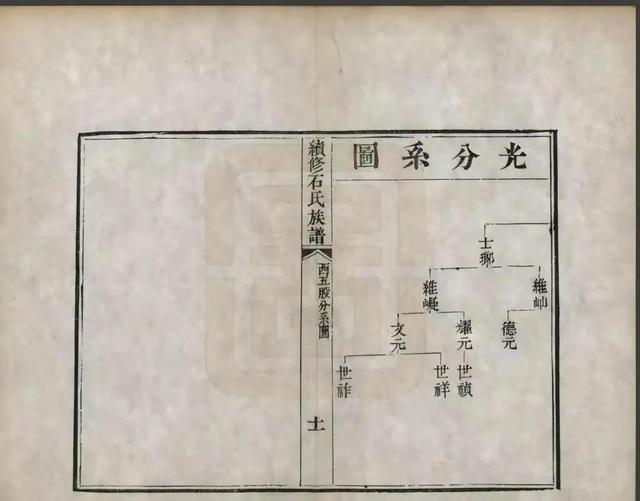 光分系圖
士瑯
維屾
維嶷
德元
耀元
文元
世禎
世祥
世祚
續修石氏族譜
西五股分系圖
十一